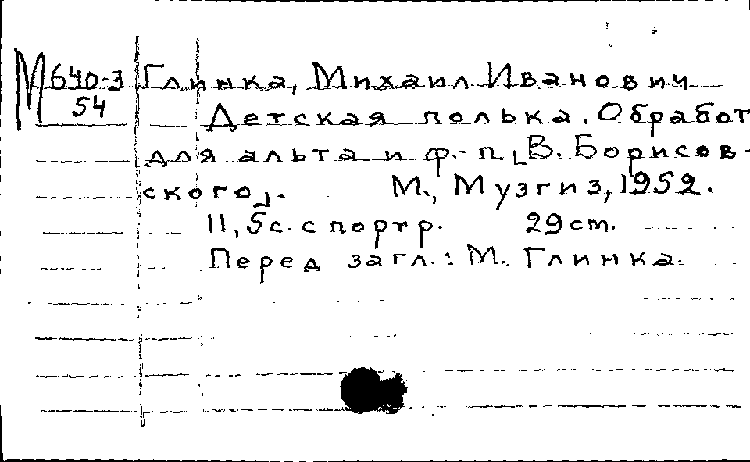 М 640-3 Глинка, Михаил Иванович
54 Детская полька. Обработ
для альта и ф.-п. [В. Борисов-
ского]. М., Музгиз, 1952.
11, 5с. с портр. 29 см.
Перед загл.: М. Глинка.